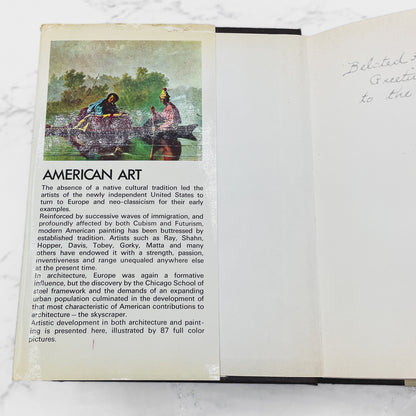 AMERICAN ART
The absence of a native cultural tradition led the
artists of the newly independent United States to
turn to Europe and neo-classicism for their early
examples.
Reinforced by successive waves of immigration, and
profoundly affected by both Cubism and Futurism,
modern American painting has been buttressed by
established tradition. Artists such as Ray, Shahn,
Hopper, Davis, Tobey, Gorky, Matta and many
others have endowed it with a strength, passion,
inventiveness and range unequaled anywhere else
at the present time.
In architecture, Europe was again a formative
influence, but the discovery by the Chicago School of
steel framework and the demands of an expanding
urban population culminated in the development of
that most characteristic of American contributions to
architecture — the skyscraper.
Artistic development in both architecture and paint-
ing is presented here, illustrated by 87 full color
pictures.
Belated
to the